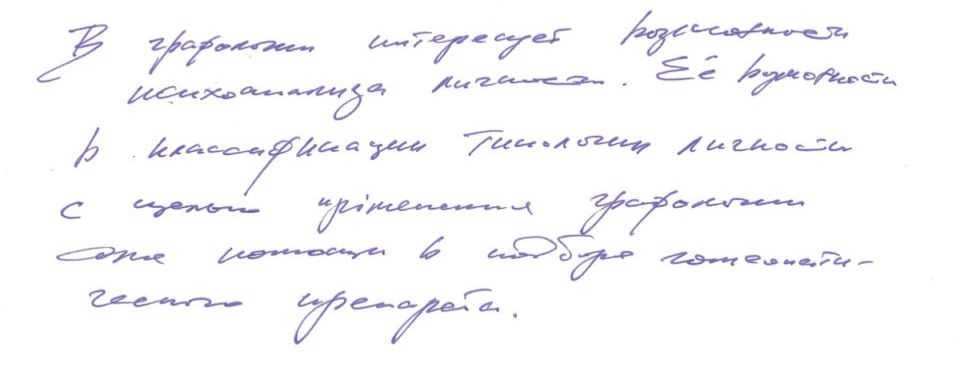 В графологии интересует возможности
психоанализа личности. Её возможности
в классификации типологии личности
с целью применения графологии
для помощи в подборе гомеопати-
ческого препарата.